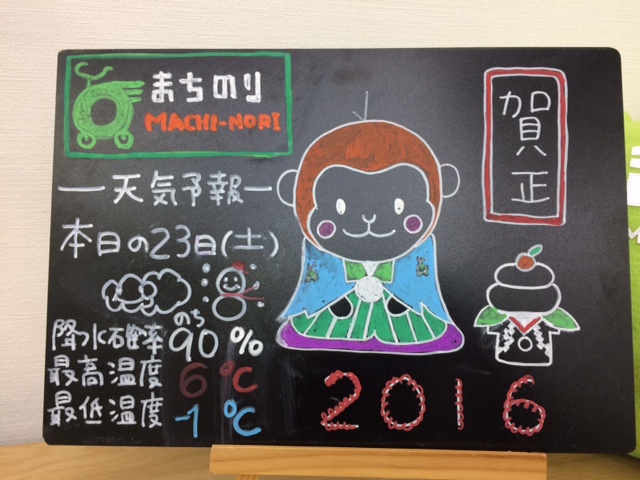 まちのり
MACHI-NORI
賀正
天気予報
本日の23日(土)
のち
降水確率 90%
最高温度 6℃
最低温度 -1℃
2016